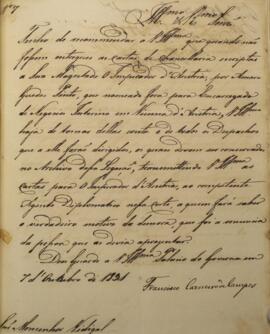 Nº 7
Illmo Snr
Tenho de recommendar a V. que quando não
fossem entregues as Cartas de Chancellaria
a Sua Magestade O Imperador d'Austria, por
Pinto, que nomeado fora para Encarregado
de Negocios Interino em Vienna d'Austria, V.
haja de tomar dellas conta e de todos os Despachos
que a elle forão dirigidos, os quaes devem ser
no Archivo dessa Legação, transmittindo V. as
Cartas para O Imperador d'Austria, ao competente
Agente Diplomatico nessa Corte, a quem fará saber
o verdadeiro motivo da demora, que foi a renuncia
da pessoa que as devia apresentar.
Deos Guarde a V. Palacio do Governo em
7 d'Outubro de 1831
Francisco Carneiro de Campos
Monsenhor Vidigal